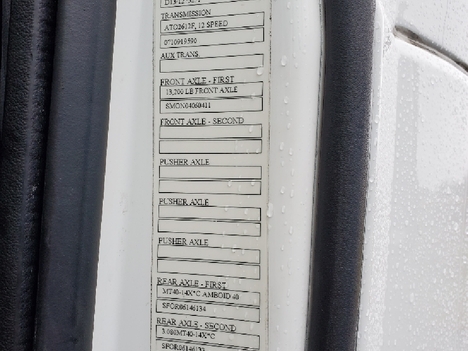 TRANSMISSION
ATO2612F, 12 SPEED
0710919590
AUX TRANS
FRONT AXLE - FIRST
13,200 LB FRONT AXLE
SMON04060411
FRONT AXLE - SECOND
PUSHER AXLE
PUSHER AXLE
PUSHER AXLE
REAR AXLE - FIRST
MT40-14X*C AMBOID 40
SFOR06146134
REAR AXLE - SECOND
3.080MT40-14X*C